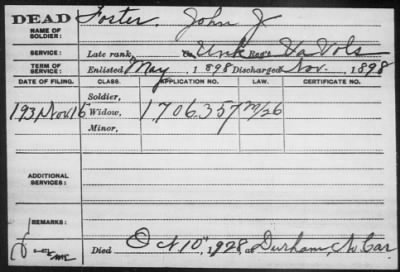 DEAD Foster, John J
NAME OF SOLDIER:
SERVICE: Late rank, Co. Unk Reg't Va Vols
TERM OF SERVICE: Enlisted May, 1898 Discharged Nov., 1898
DATE OF FILING. CLASS. APPLICATION NO. LAW. CERTIFICATE NO.
Soldier,
1931 Nov 16 Widow, 1,706,357 m/26
Minor,
ADDITIONAL SERVICES:
REMARKS:
Died Oct. 10", 1928, at Durham, N. Car